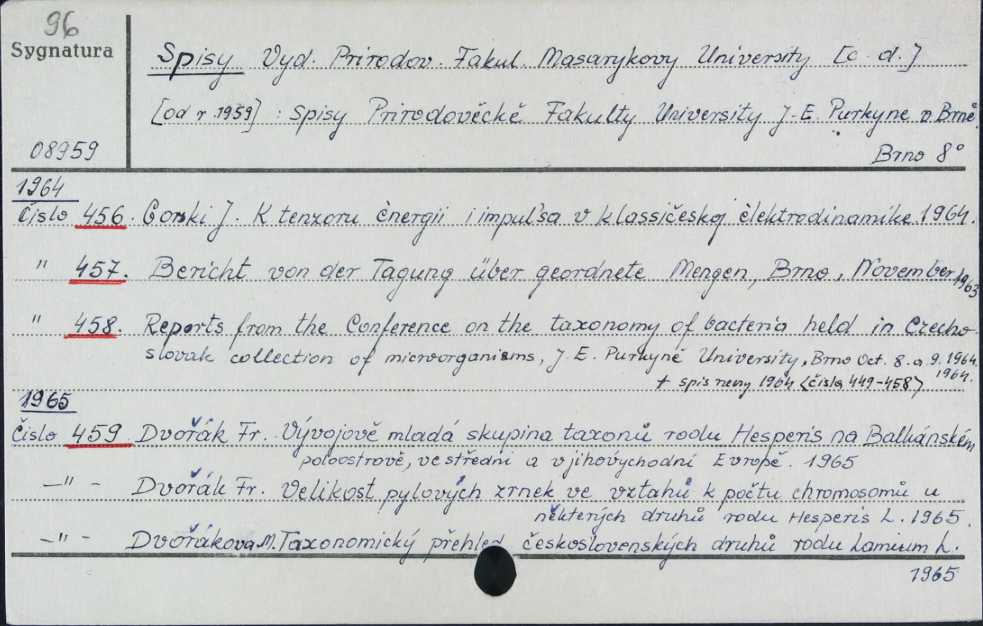 96
Sygnatura
08959
Spisy Vyd. Prirodov. Fakul. Masarykovy University [c. d.]
[od r. 1959] : Spisy Prirodověckě Fakulty University J. E. Purkyne v Brně.
Brno 8°
1964
Čislo 456. Gorski J. K tenzoru ènergii i impul'sa v klassičeskoj èlektrodinamike. 1964.
" 457. Bericht von der Tagung über geordnete Mengen, Brno, November 1963
" 458. Reports from the Conference on the taxonomy of bacteria held in Czecho-
slovak collection of microorganisms, J. E. Purkyně University, Brno Oct. 8. a 9. 1964.
1964.
+ spis nevy 1964 (čisla 449-458)
1965
Čislo 459 Dvořák Fr. Vývojově mladá skupina taxonů rodu Hesperis na Balkánském
poloostrově, ve střední a v jihovýchodní Evropě. 1965
-"- Dvořák Fr. Velikost pylových zrnek ve vztahů k počtu chromosomů u
některých druhů rodu Hesperis L. 1965.
-"- Dvořákova M. Taxonomický přehled československých druhů rodu Lamium L.
1965